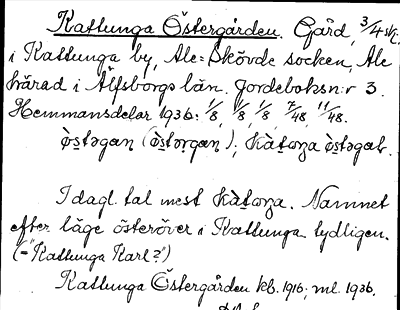 Kattunga Östergården. Gård, 3/4 sk.
i Kattunga by, Ale=Skövde socken, Ale
härad i Älfsborgs län. Jordeboksn:r 3.
Hemmansdelar 1936: 1/8, 1/8, 1/8, 7/48, 11/48.
I dagl. tal mest Namnet
efter läge österöver i Kattunga tydligen.
(="Kattunga Karl?")
Kattunga Östergården kb. 1916; ml. 1936.